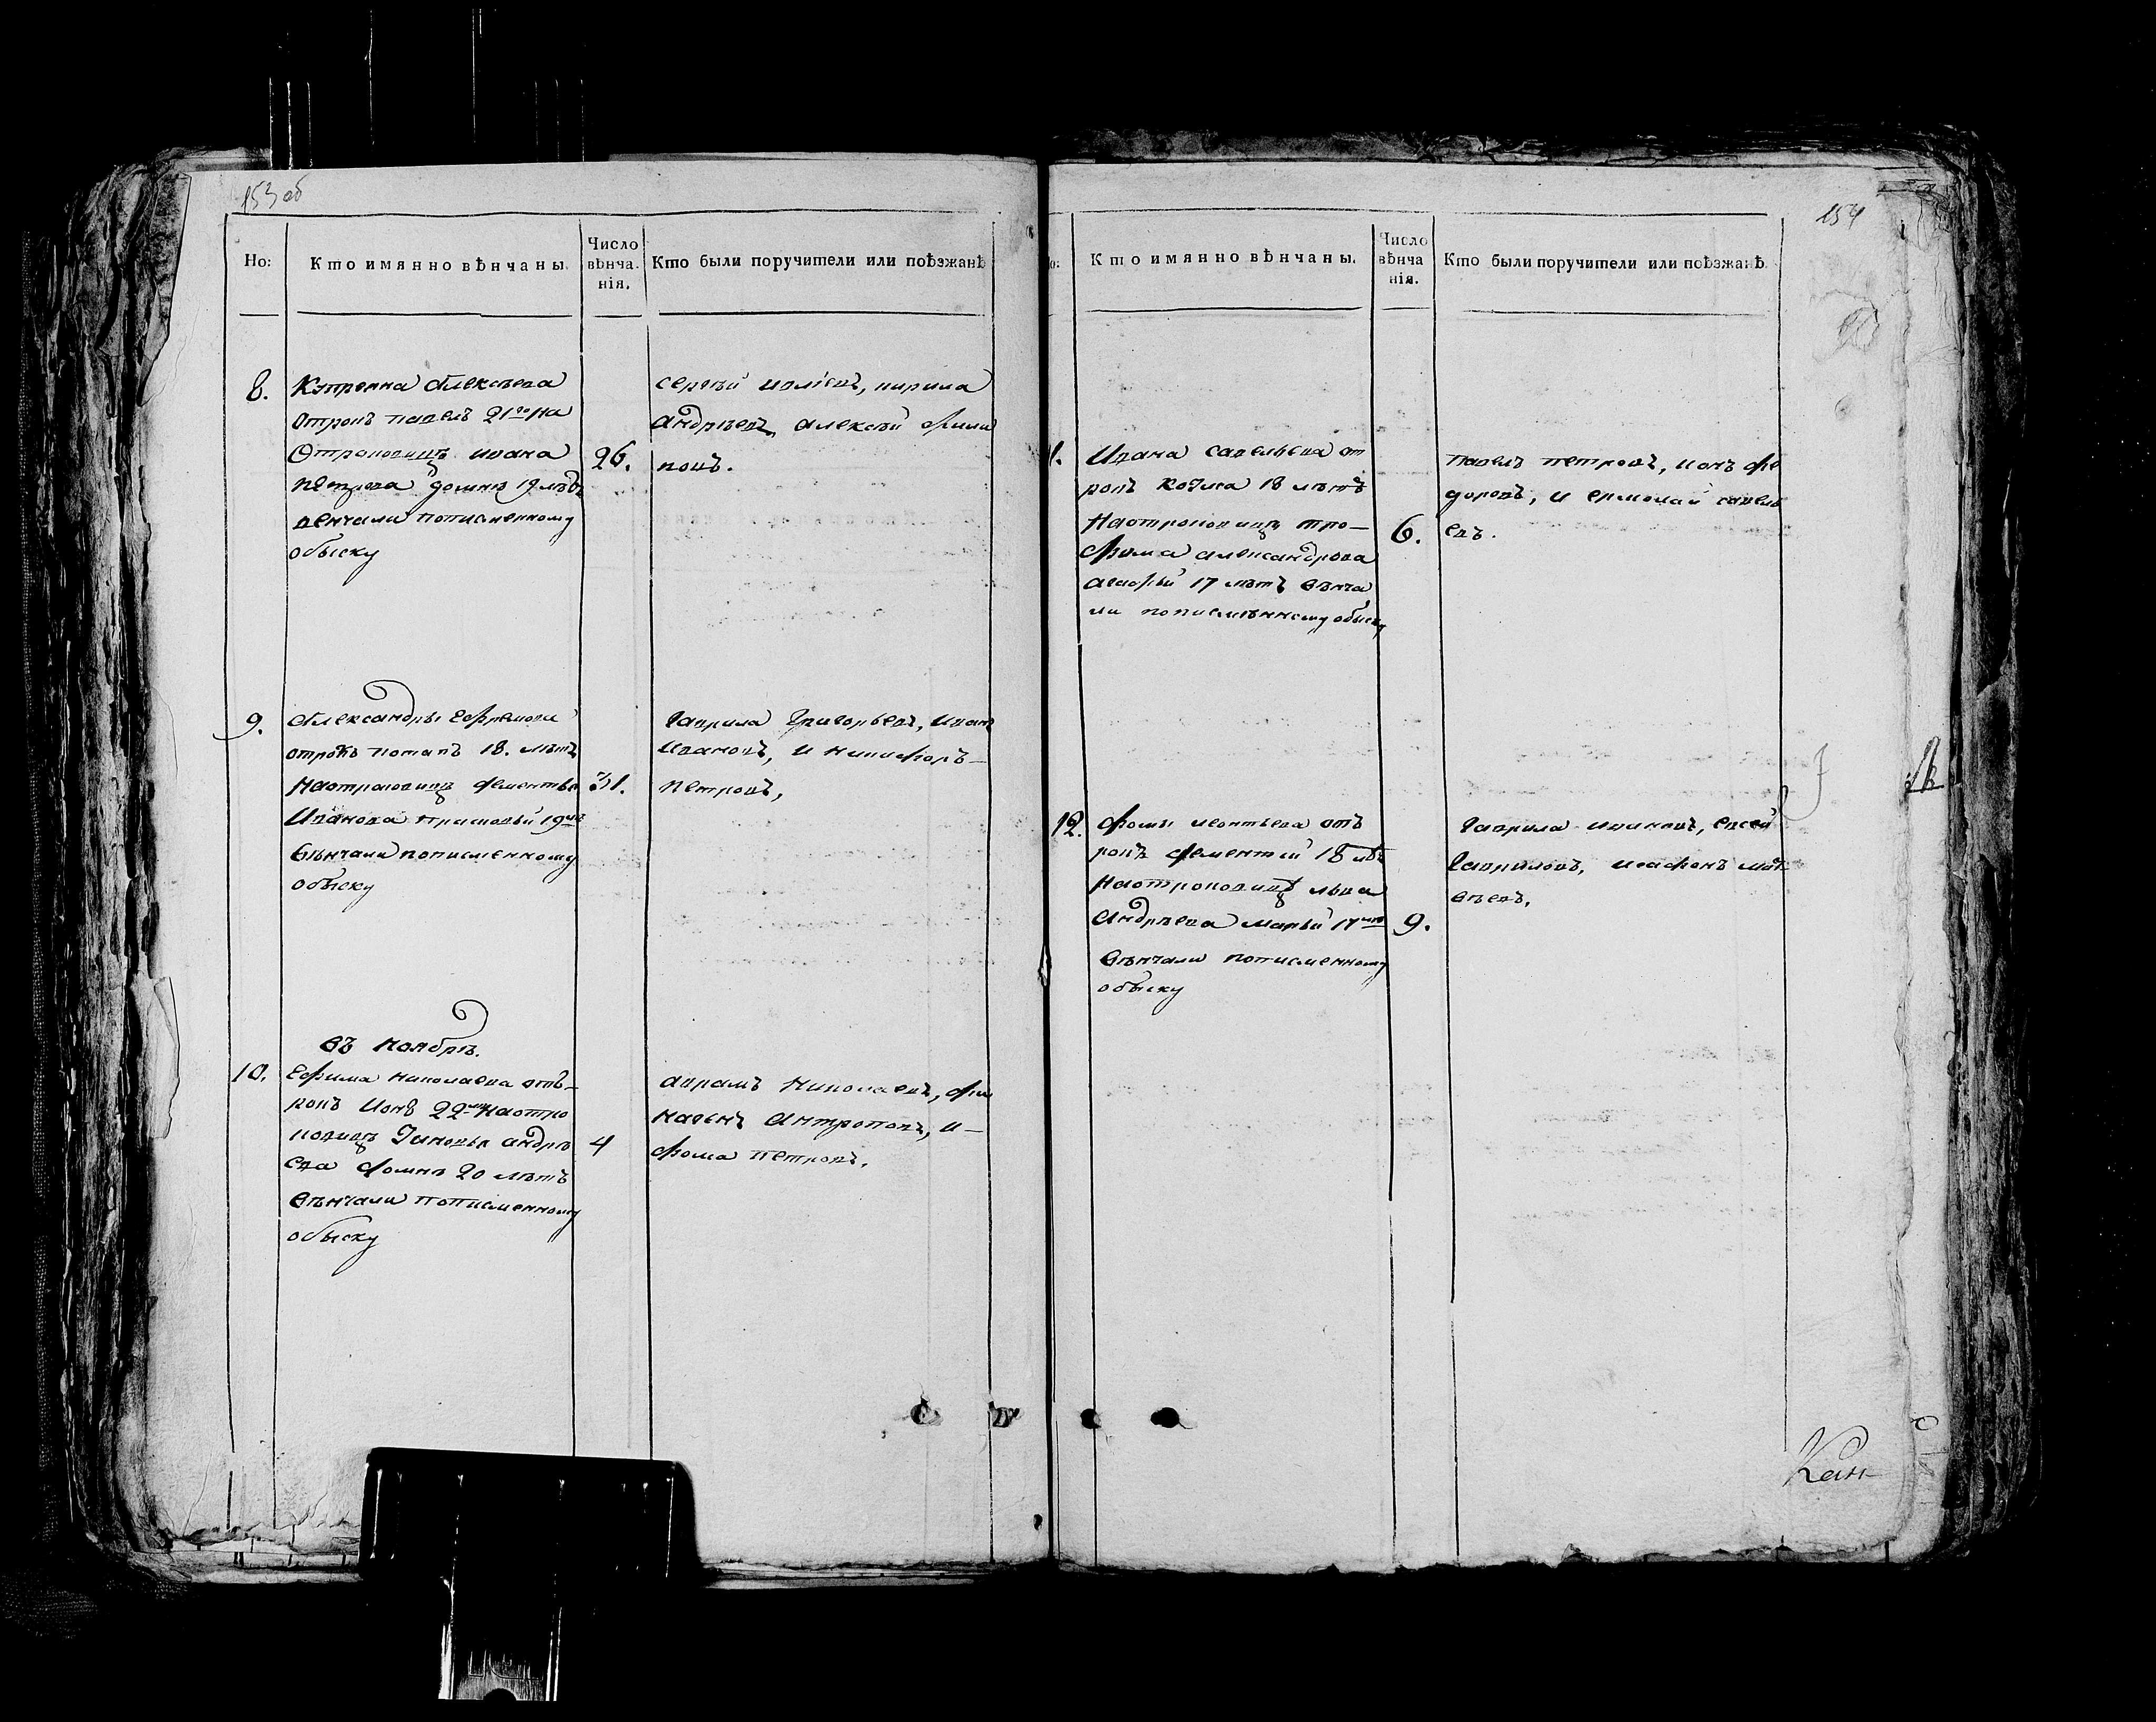 153 об
Но:
Кто имянно вѣнчаны.
Число вѣнча-нія.
Кто были поручители или поѣзжанѣ
8.
Купреяна Алексѣева
отрокъ павелъ 21го на
Отроковицѣ ивана
петрова домнѣ 19 лѣтъ
венчали пописменному
обыску
26.
сергѣй иовлѣвъ, кирила
андрѣевъ, алексѣй фили
повъ.
9.
Александры Ефремова
отрокъ потапъ 18. лѣтъ
наотроковицѣ дементья
Иванова
вѣнчали пописменному
обыску
31.
гаврила григорьевъ, иванъ
ивановъ, и никифоръ
петровъ,
въ ноябрѣ.
10.
Ефима николаева отъ-
рокъ 22 наотро
ковицѣ Зиновья андрѣ
ева фомнѣ 20 лѣтъ
вѣнчали пописменному
обыску
4
аврамъ николаевъ,
антроповъ, и
фома петровъ.
154
Кто имянно вѣнчаны.
Число вѣнча нія.
Кто были поручители или поѣзжанѣ.
Ивана савельева от
рокъ козма 18 лѣтъ
наотроковицѣ тро-
фима александрова
агафьи 17 лѣтъ вѣнча
ли пописмѣнному обыску
6.
павелъ петровъ, ионъ фе
доровъ, и ермолай савель
евъ.
12.
фомы леонтьева отъ
рокъ дементей 18 лѣ
наотроковицѣ льва
андрѣева марьи 17
вѣнчали пописменному
обыску
9.
гаврила ивановъ, евсей
гавриловъ, агафонъ мат
вѣевъ.